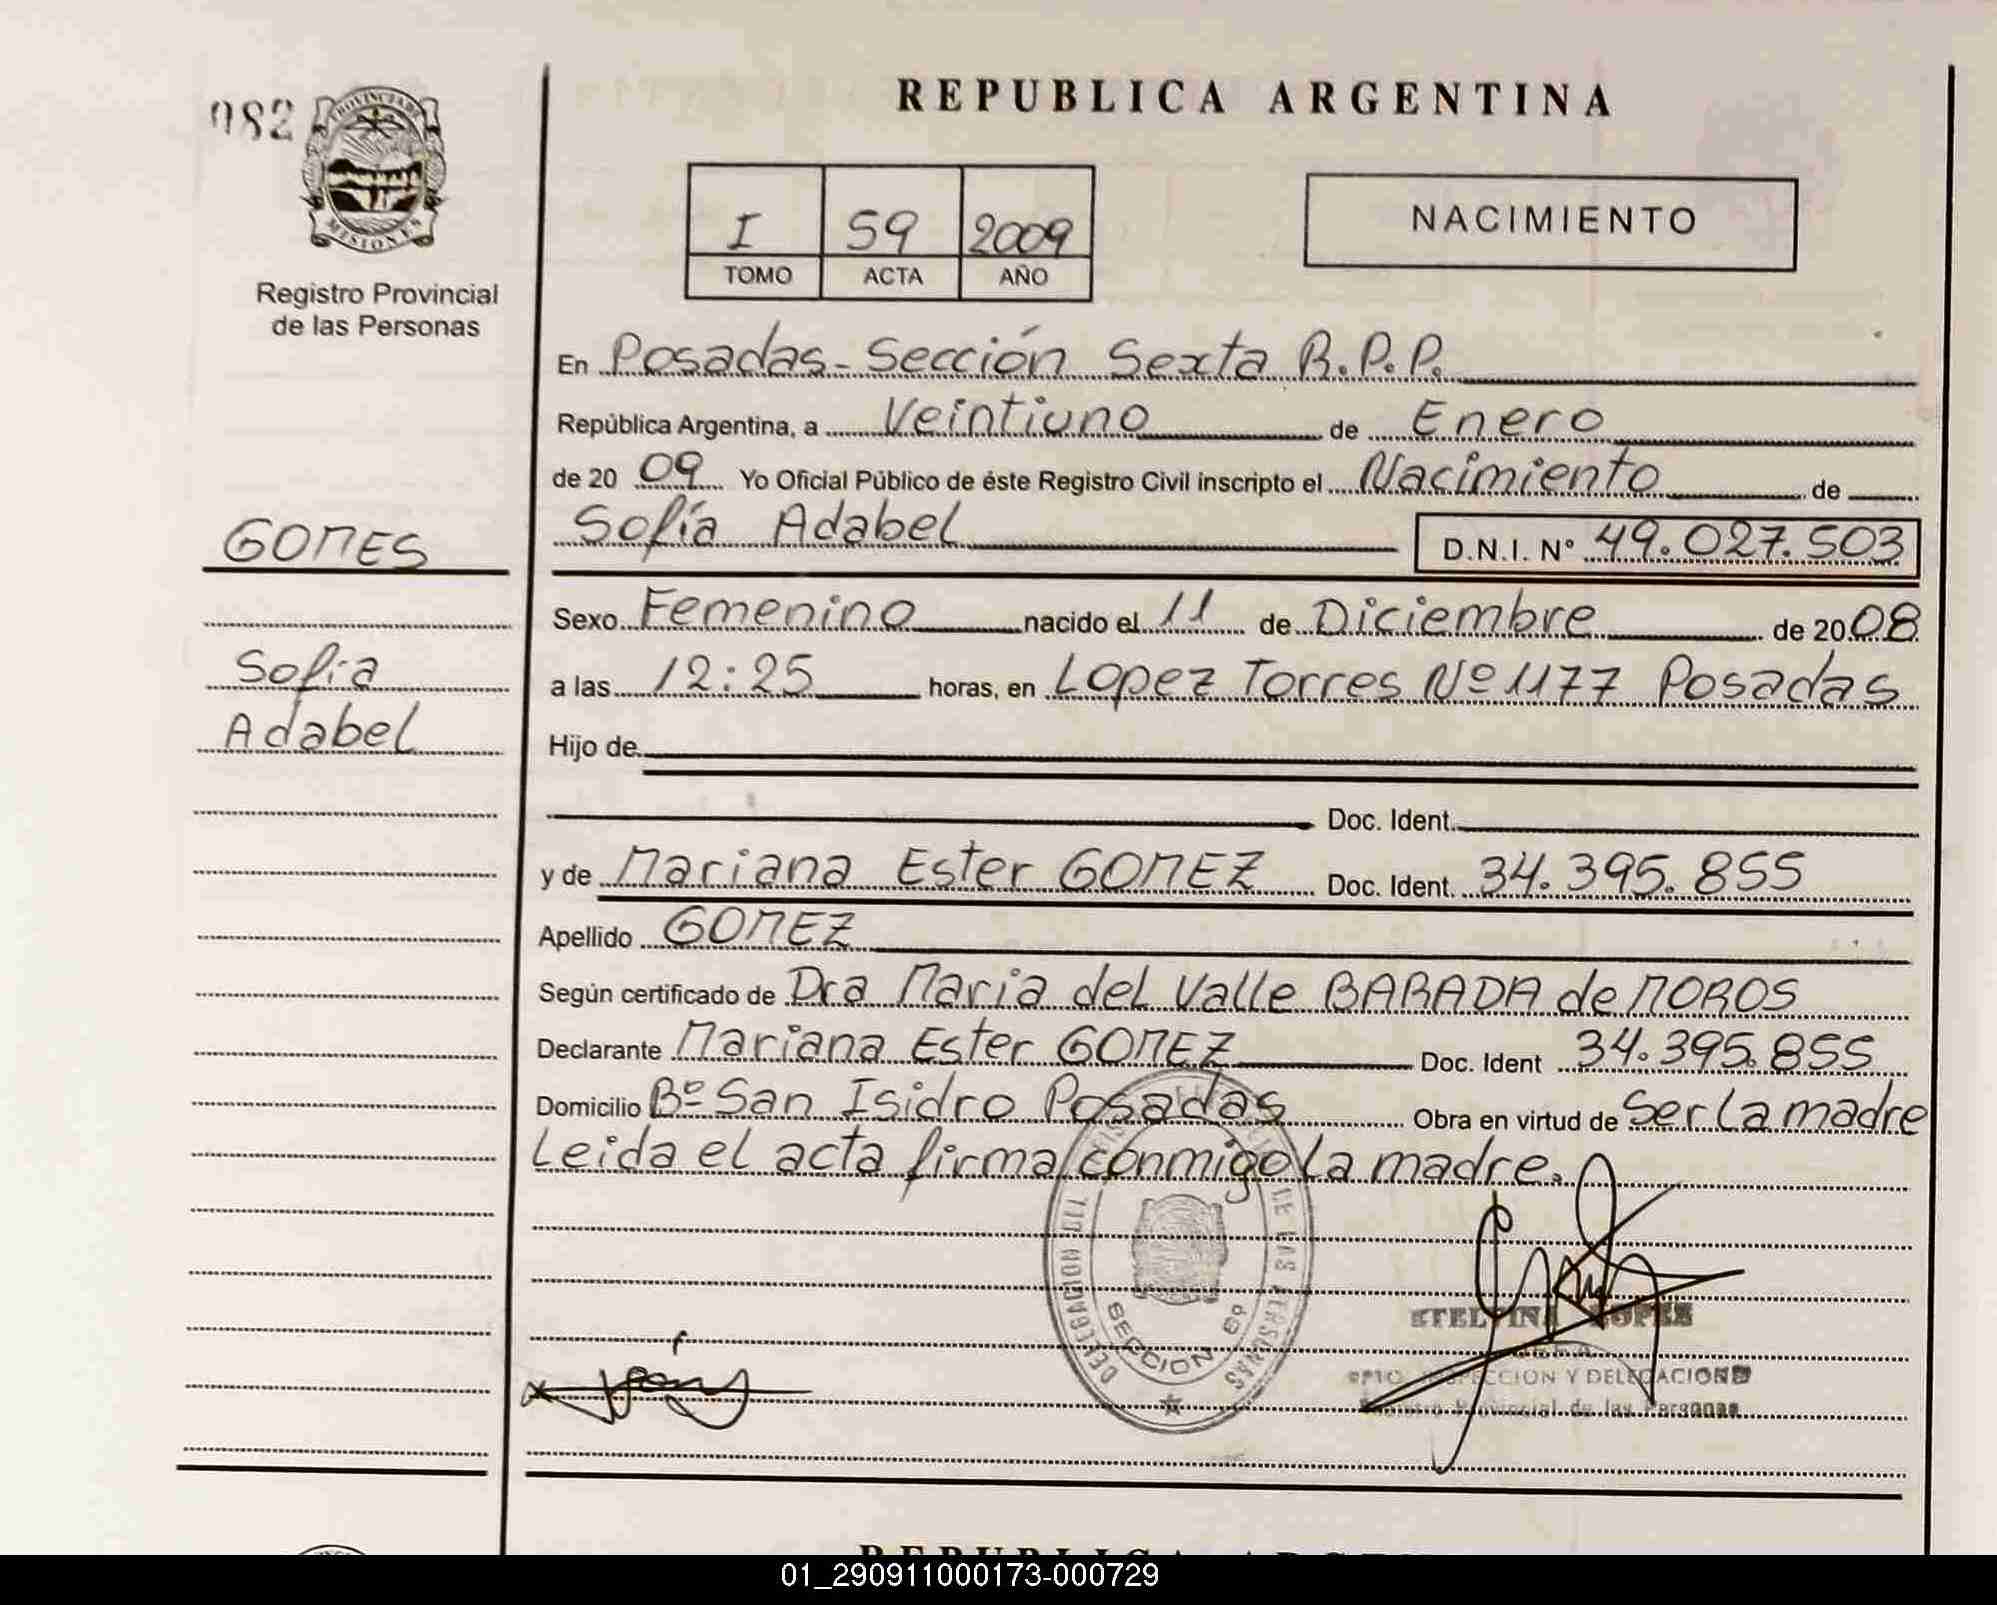 082
PROVINCIA DE
MISIONES
Registro Provincial
de las Personas
GOMES
Sofía
Adabel
REPUBLICA ARGENTINA
I 59 2009
TOMO ACTA AÑO
NACIMIENTO
En Posadas - Sección Sexta R.P.P.
República Argentina, a Veintiuno de Enero
de 20 09 Yo Oficial Público de éste Registro Civil inscripto el Nacimiento de
Sofía Adabel D.N.I. Nº 49.027.503
Sexo Femenino nacido el 11 de Diciembre de 20 08
a las 12:25 horas, en Lopez Torres Nº 1177 Posadas
Hijo de
Doc. Ident.
y de Mariana Ester GOMEZ Doc. Ident. 34.395.855
Apellido GOMEZ
Según certificado de Dra Maria del Valle BARADA de MOROS
Declarante Mariana Ester GOMEZ Doc. Ident 34.395.855
Domicilio Bº San Isidro Posadas Obra en virtud de Ser la madre
Leida el acta firma conmigo la madre.
DE LAS PERSONAS
DELEGACION
SECCION 6º
ETELVINA LOPEZ
DPTO. INSPECCION Y DELEGACIONES
Registro Provincial de las Personas
REPUBLICA ARGENTINA
01_290911000173-000729